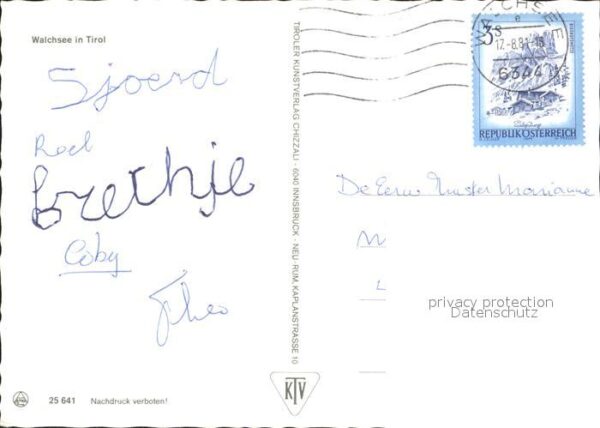 Walchsee in Tirol
Sjoerd
Roel
Grethje
Coby
Theo
25 641 Nachdruck verboten!
TIROLER KUNSTVERLAG CHIZZALI - 6040 INNSBRUCK - NEU-RUM, KAPLANSTRASSE 10
KTV
WALCHSEE
12.-8.81-18
6344
3S
REPUBLIK ÖSTERREICH
De Eerw. Zuster Marianne
M
L
privacy protection
Datenschutz